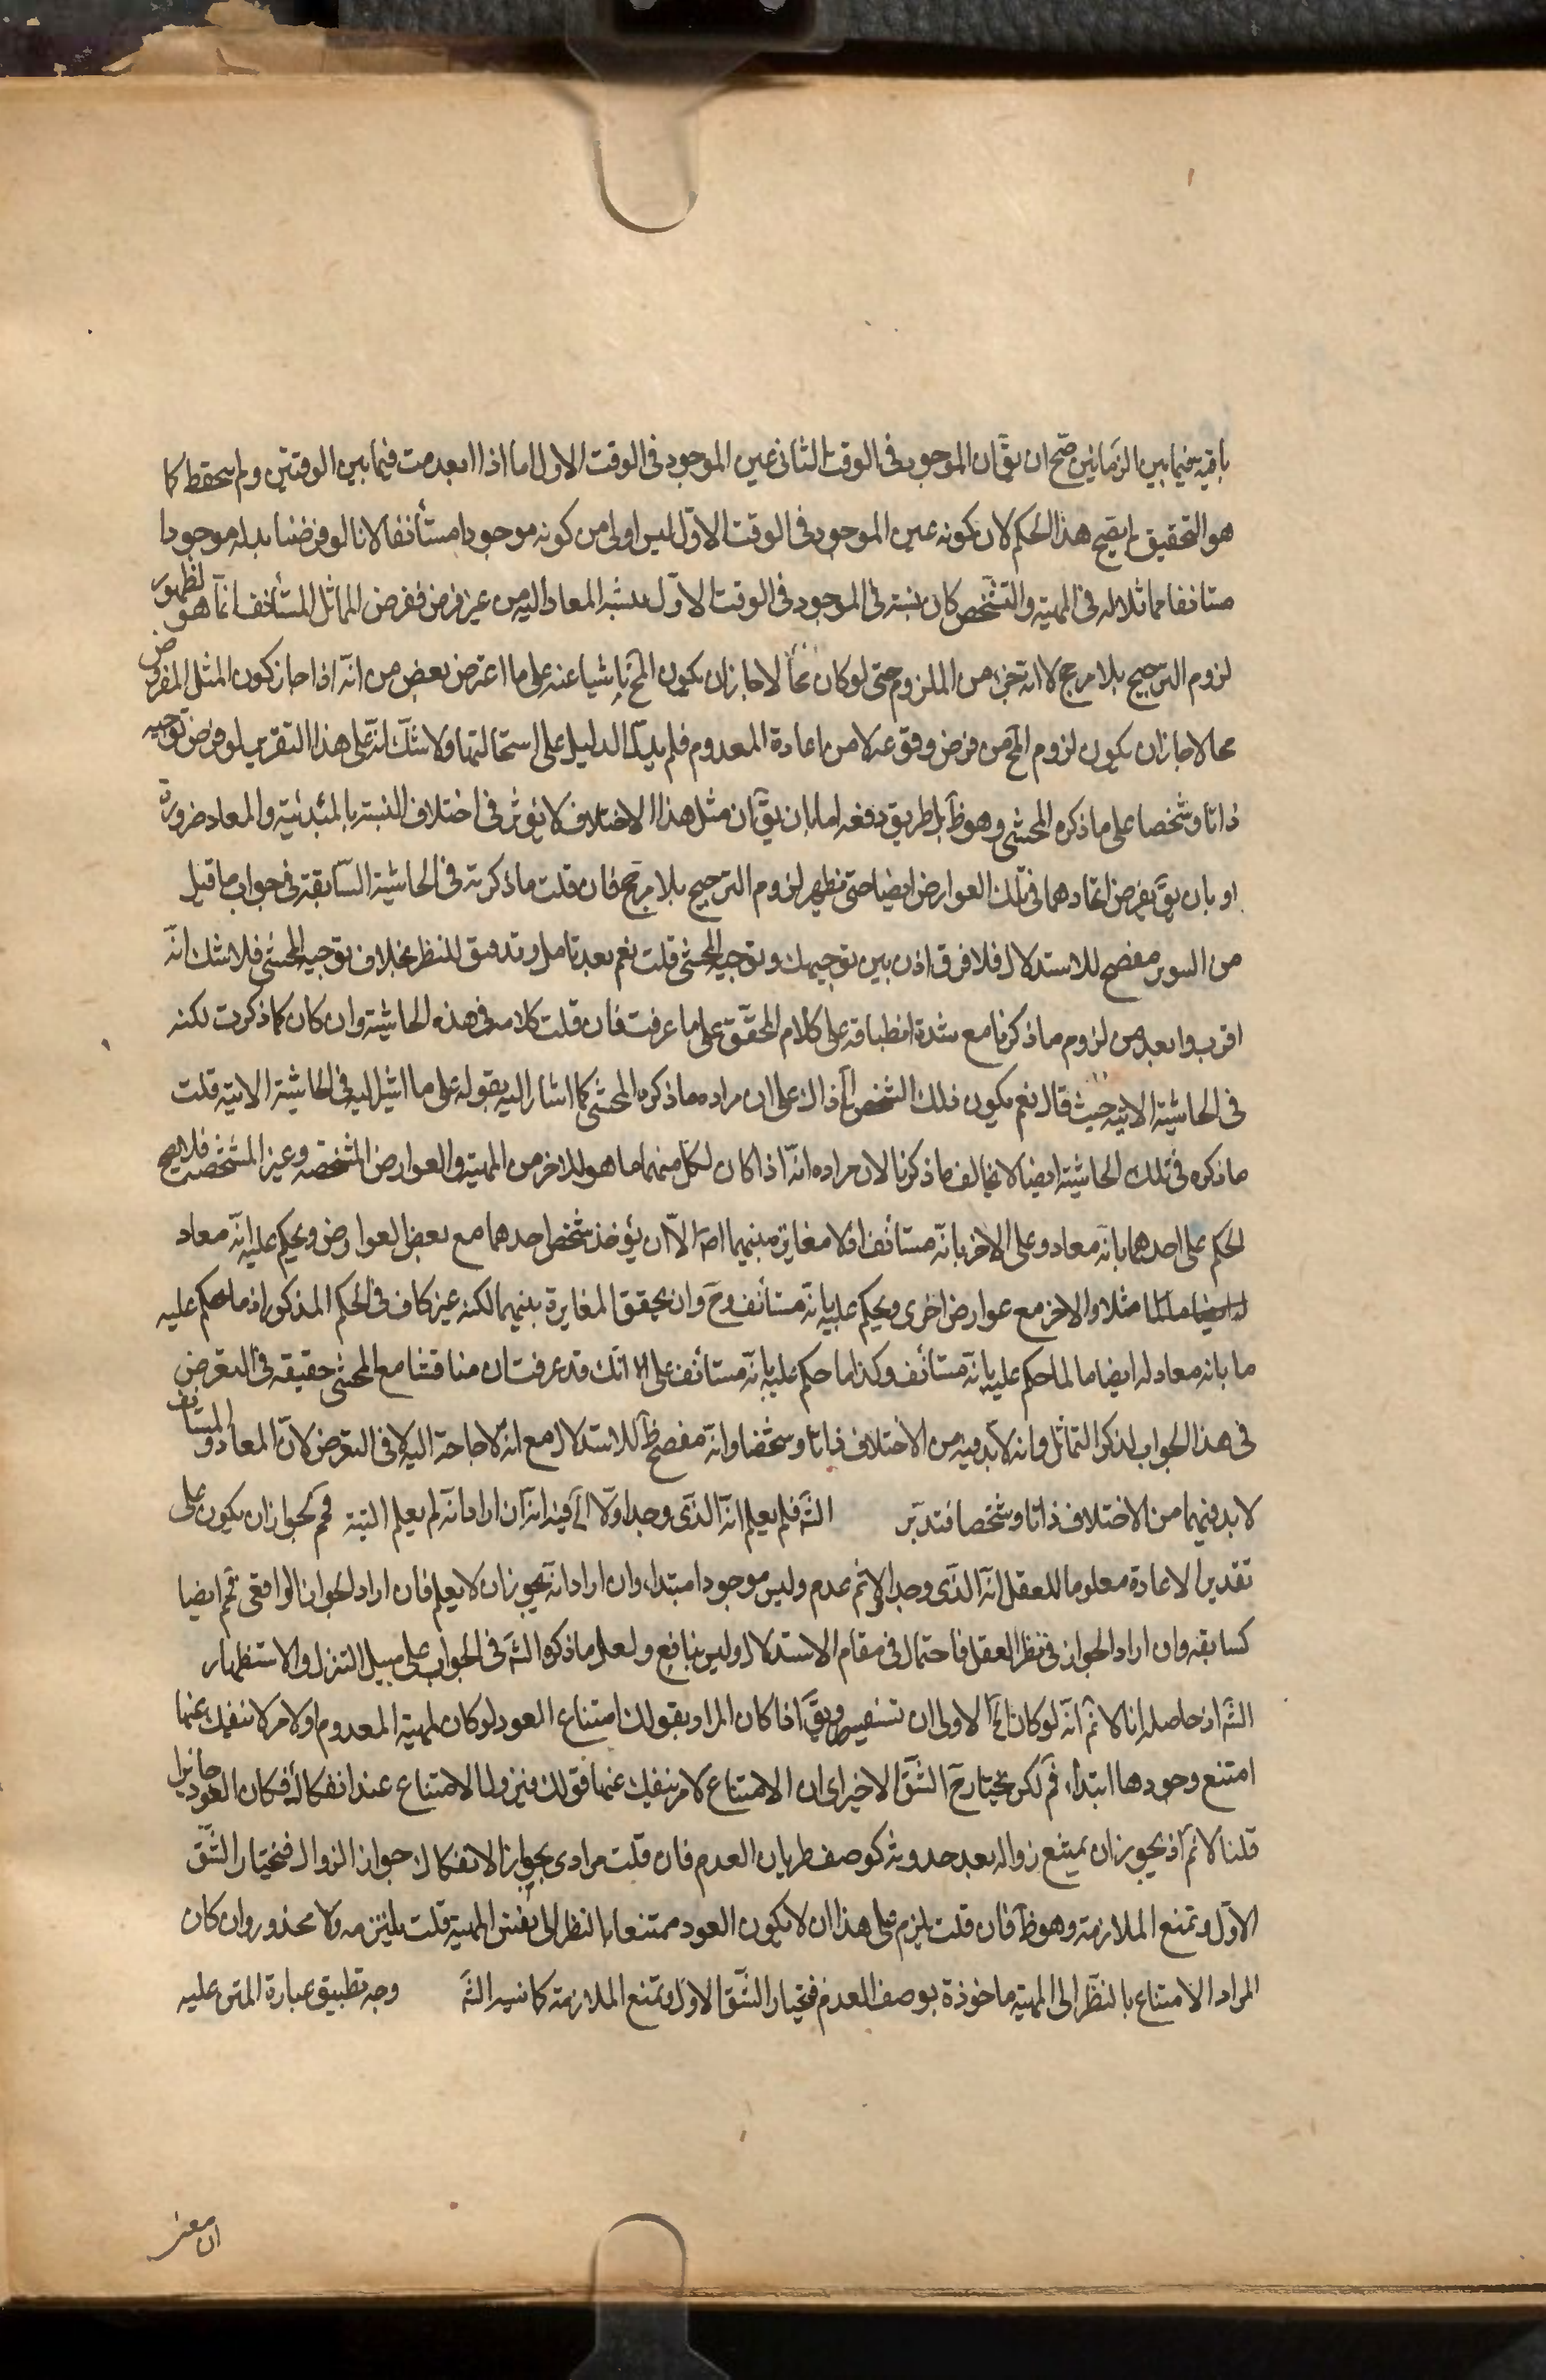 باقية فيما بين الزمانين صح ان يقٓ ان الموجود فى الوقت الثانى عين الموجود فى الوقت الاول اما اذا انعدمت فيما بين الوقتين ولم يتحفظ كما
هو التحقيق لم يصح هذا الحكم لان كونه عين الموجود فى الوقت الاوّل ليس اولى من كونه موجودا مستأنفا لانا لو فرضنا بدله موجودا
مستانفا مماثلا له فى المهية والتشخص كان نسبته فى الموجود فى الوقت الاوّل كنسبة المعاد اليه من غير فرق ففرض المماثل المستأنف انما هو لظهور
لزوم الترجيح بلا مرجح لا انه جزء من الملزوم حتى لو كان محٓا لا جاز ان يكون المحٓ ناشيا عنه على ما اعترض بعض من انّه اذا جاز كون المثل المفروض
محالا جاز ان يكون لزوم المحٓ من فرض وقوعه لا من اعادة المعدوم فلم يدلّ الدليل على استحالتها ولا شكّ انّه على هذا التقرير لو فرض توجيه
ذاتا وشخصا على ما ذكره المحشى وهو ظٓ بل طريق دفعه اما بان يقٓ ان مثل هذا الاختلاف لا يؤثر فى اختلاف النسبة بالمبتدئية والمعاد ضرورة
او بان يقٓ بفرض اتحادهما فى تلك العوارض ايضا حتى يظهر لزوم الترجيح بلا مرجح فان قلت ما ذكرته فى الحاشية السّابقة فى جواب ما قيل
من السوير مفصح للاستدلال فلا فرق اذن بين توجيهك وتوجيه المحشى قلت نعم بعد تامل وتدقيق للنظر بخلاف توجيه المحشى فلا شك انّه
اقرب وابعد من لزوم ما ذكرنا مع شدة انطباقه على كلام المحقّق على ما عرفت فان قلت كلامه فى هذه الحاشية وان كان كما ذكرت لكنه
فى الحاشية الاتية حيث قال نعم يكون ذلك الشخص الٓخ ذاك على ان مراده ما ذكره المحشى كما اشار اليه بقوله على ما اشير اليه فى الحاشية الاتية قلت
ما ذكره فى تلك الحاشية ايضا لا يخالف ما ذكرنا لان مراده انّه اذا كان لكل منهما ما هو للاخر من المهية والعوارض المشخصه وغير المشخصه فلا يصح
الحكم على احدهما بانه معاد وعلى الاخر بانّه مستأنف اذ لا مغايرة بينهما اصٓ الّا ان يؤخذ شخص احدهما مع بعض العوارض ويحكم عليه انّه معاد
مثلا والاخر مع عوارض اخرى ويحكم عليه بانّه مستأنف وحٓ وان يحقق المغايرة بينهما لكنه غير كاف فى الحكم المذكور اذ ما حكم عليه
ما بانه معاد له ايضا ما لما حكم عليه بانّه مستأنف وكذا ما حكم عليه بانّه مستأنف على انّك قد عرفت ان مناقشنا مع المحشى حقيقه فى التعرض
فى هذا الجواب لذكر التماثل وانه لا بد فيه من الاختلاف ذاتا وشخصا وانّه مفصح ظٓ للاستدلال مع انه لا حاجة اليه لا فى التعرض لانّ المعاد والمستانف
لا بد فيهما من الاختلاف ذاتا وشخصا فتدبّر الشٓ فلم يعلم انّه الذى وجد اولا الٓخ فيه انّه ان اراد انّه لم يعلم البتة فمٓ لجواز ان يكون على
تقدير الاعادة معلوما للعقل انّه الذى وجد اولا ثم عدم وليس موجودا مبتدا، وان اراد انّه يجوز ان لا يعلم فان اراد الجواز الواقعى فمٓ ايضا
كسابقه وان اراد الجواز فى نظر العقل فاحتمال فى مقام الاستدلال وليس بنافع ولعل ما ذكره الشٓ فى الجواب على سبيل التنزل والاستظهار
الشٓ اذ حاصله انا لا نمٓ انّه لو كان الٓخ الاولى ان تستفسر ويقٓ اذا كان المراد بقولك امتناع العود لو كان لمهية المعدوم او لامر لا ينفك عنها
امتنع وجودها ابتداء، فمٓ لكن نختار حٓ الشّقّ الاخير اى ان الامتناع لامر ينفك عنها فقولك فيزول الامتناع عند انفكاك فكان العود جايزا
قلنا لا نمٓ اذ يجوز ان يمتنع زواله بعد حدوثه كوصف طريان العدم فان قلت مرادى بجواز الانفكاك جواز الزوال فنختار الشّقّ
الاوّل ونمنع الملازمة وهو ظٓ فان قلت يلزم على هذا ان لا يكون العود ممتنعا بالنظر الى نفس المهية قلت يلتزمه ولا محذور وان كان
المراد الامتناع بالنظر الى المهية ماخوذة بوصف العدم فنختار الشّقّ الاول ونمنع الملازمة كما فسره الشٓ وجه تطبيق عبارة المتن عليه
ان معنى